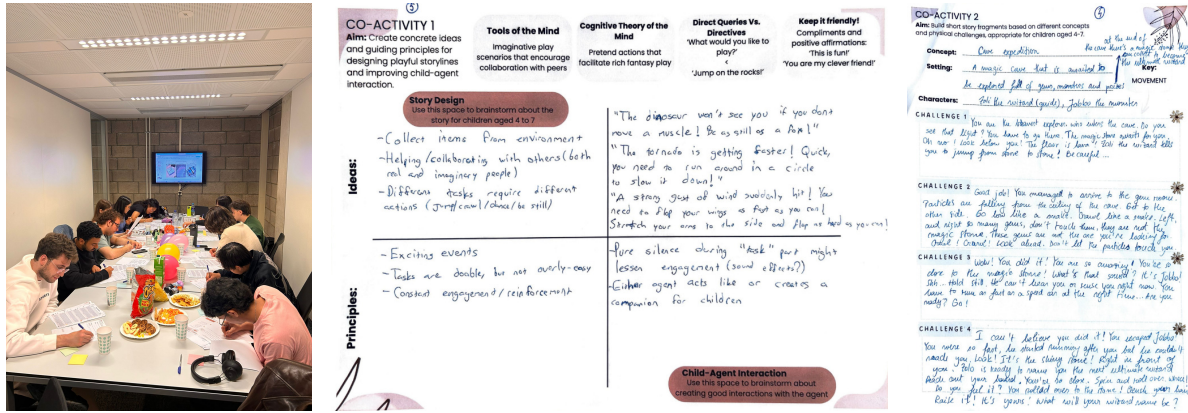 CO-ACTIVITY 1
Aim: Create concrete ideas
and guiding principles for
designing playful storylines
and improving child-agent
interaction.
Tools of the Mind
Imaginative play
scenarios that encourage
collaboration with peers
Cognitive Theory of the
Mind
Pretend actions that
facilitate rich fantasy play
Direct Queries Vs.
Directives
'What would you like to
play?'
<
'Jump on the rocks!'
Keep it friendly!
Compliments and
positive affirmations:
'This is fun!'
'You are my clever friend!'
5
Story Design
Use this space to brainstorm about the
story for children aged 4 to 7
Ideas:
- Collect items from environment
- Helping/collaborating with others (both
real and imaginary people)
- Different tasks require different
actions (jump/crawl/dance/be still)
"The dinosaur won't see you if you don't
move a muscle! Be as still as a
"The tornado is getting faster! Quick,
you need to run around in a circle
to slow it down!"
"A strong gust of wind suddenly hit! You
need to flap your wings as fast as you can!
Stretch your arms to the side and flap as hard as you can!
Principles:
- Exciting events
- Tasks are doable, but not overly-easy
- Constant engagement/reinforcement
- Pure silence during "task" part might
lessen engagement (sound effects?)
- Either agent acts like or creates a
companion for children
Child-Agent Interaction
Use this space to brainstorm about
creating good interactions with the agent
CO-ACTIVITY 2
Aim: Build short story fragments based on different concepts
and physical challenges, appropriate for children aged 4-7.
Concept: Cave expedition
at the end of
the cave there's a magic stone
the ultimate wizard
Setting: A magic cave that is
be explored full of gems, monsters and
Key:
MOVEMENT
Characters: the wizard (guide), Jabba the monster
CHALLENGE 1
You are the bravest explorer who enters the cave. Do you
see that light? You have to go there. The magic stone awaits for you.
Oh no! Look below you! The floor is lava! the wizard tells
you to jump from stone to stone! Be careful...
CHALLENGE 2
Good job! You managed to arrive to the gem room.
Particles are falling from the ceiling of the cave. Get to the
other side. Go low like a snake. Crawl like a snake. Left,
and right so many gems, don't touch them, they are not the
magic stone. These gems are not the one you're looking for
Crawl! Crawl! Look ahead. Don't let the particles touch you
CHALLENGE 3
Wow! You did it! You are so amazing! You're so
close to the magic stone! What's that sound? It's Jabba!
Shh.. Hold still. He can't hear you or sense you right now. You
have to run as fast as a at the right time... Are you
ready? Go!
CHALLENGE 4
I can't believe you did it! You escaped Jabba!
You were so fast, he started running after you but he couldn't
reach you. Look! It's the shiny stone! Right in front of
you. is ready to name you the next ultimate wizard
Reach out your hand. You're so close. Spin and roll over
Do you feel it? You rolled over to the stone! Clench your
Raise it! It's yours! What will your wizard name be?